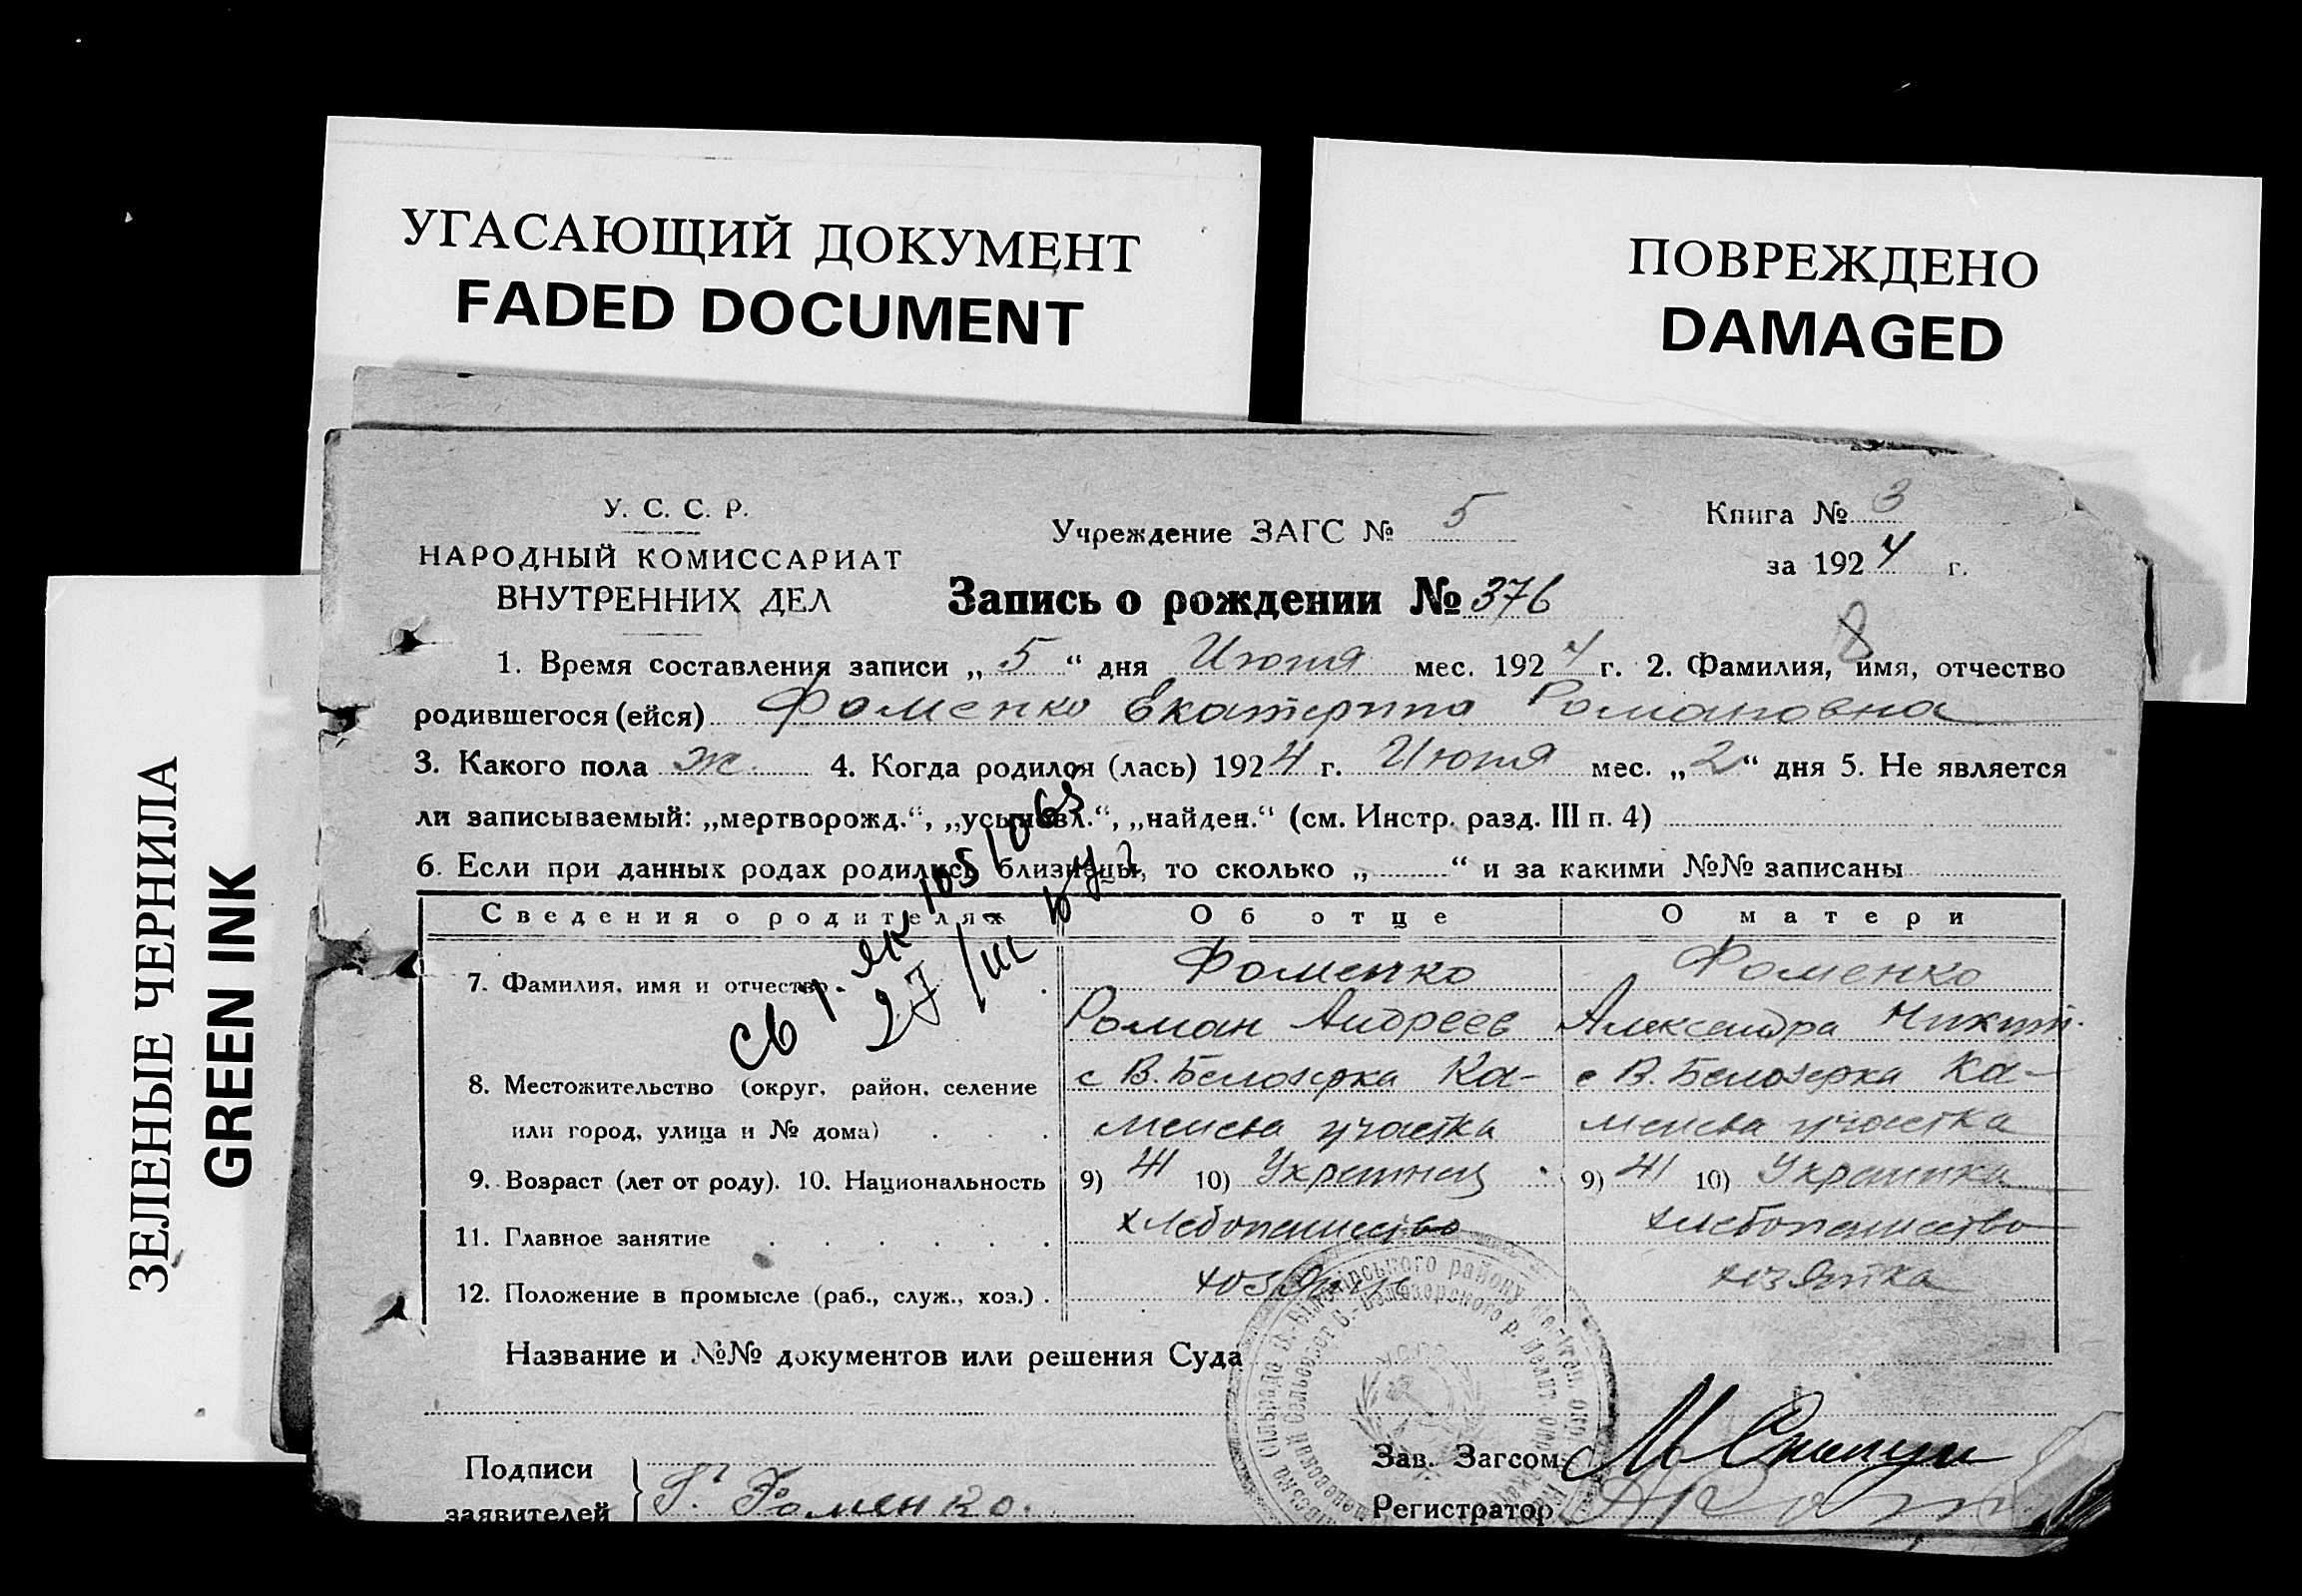 УГАСАЮЩИЙ ДОКУМЕНТ
FADED DOCUMENT
ПОВРЕЖДЕНО
DAMAGED
ЗЕЛЕНЫЕ ЧЕРНИЛА
GREEN INK
У. С. С. Р.
НАРОДНЫЙ КОМИССАРИАТ
ВНУТРЕННИХ ДЕЛ
Учреждение ЗАГС № 5
Книга № 3
за 1924 г.
Запись о рождении № 376
8
1. Время составления записи „5“ дня Июня мес. 1924 г. 2. Фамилия, имя, отчество
родившегося (ейся) Фоменко Екатерина Романовна
3. Какого пола ж. 4. Когда родился (лась) 1924 г. Июня мес. „2“ дня 5. Не является
ли записываемый: „мертворожд.“, „усыновл.“, „найден.“ (см. Инстр. разд. III п. 4)
6. Если при данных родах родились близнецы, то сколько „ “ и за какими №№ записаны
Сведения о родителях Об отце О матери
7. Фамилия, имя и отчество. Фоменко Фоменко
Роман Андреев Александра Никит.
8. Местожительство (округ, район, селение с В. Белозерка Ка- с В. Белозерка Ка-
или город, улица и № дома) менева участка менева участка
9. Возраст (лет от роду). 10. Национальность 9) 41 10) Украинец 9) 41 10) Украинка
11. Главное занятие хлебопашество хлебопашество
12. Положение в промысле (раб., служ., хоз.) хозяин хозяйка
27/III
Название и №№ документов или решения Суда
Подписи
заявителей
Г. Фоменко.
Зав. Загсом
Регистратор